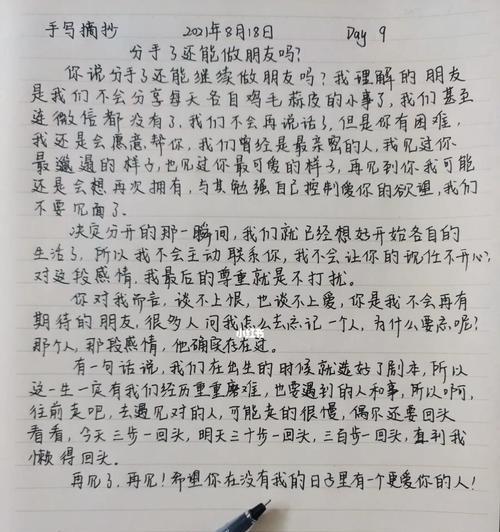 手写摘抄 2021年8月18日 Day 9
分手了还能做朋友吗?
你说分手了还能继续做朋友吗?我理解的朋友
是我们不会分享每天各自鸡毛蒜皮的小事了,我们甚至
连微信都没有了,我们不会再说话了,但是你有困难,
我还是会愿意帮你,我们曾经是最亲密的人,我见过你
最邋遢的样子,也见过你最可爱的样子,再见到你我可能
还是会想再次拥有,与其勉强自己控制爱你的欲望,我们
不要见面了。
决定分开的那一瞬间,我们就已经想好开始各自的
生活了,所以我不会主动联系你,我不会让你的现任不开心,
对这段感情,我最后的尊重就是不打扰。
你对我而言,谈不上恨,也谈不上爱,你是我不会再有
期待的朋友,很多人问我怎么去忘记一个人,为什么要忘呢?
那个人,那段感情,他确实存在过。
小红书
有一句话说,我们在出生的时候就选好了剧本,所以
这一生一定有我们经历重重磨难,也要遇到的人和事,所以啊,
往前走吧,去遇见对的人,可能走的很慢,偶尔还要回头
看看,今天三步一回头,明天三十步一回头,三百步一回头,直到我
懒得回头。
再见了,再见!希望你在没有我的日子里有一个更爱你的人!